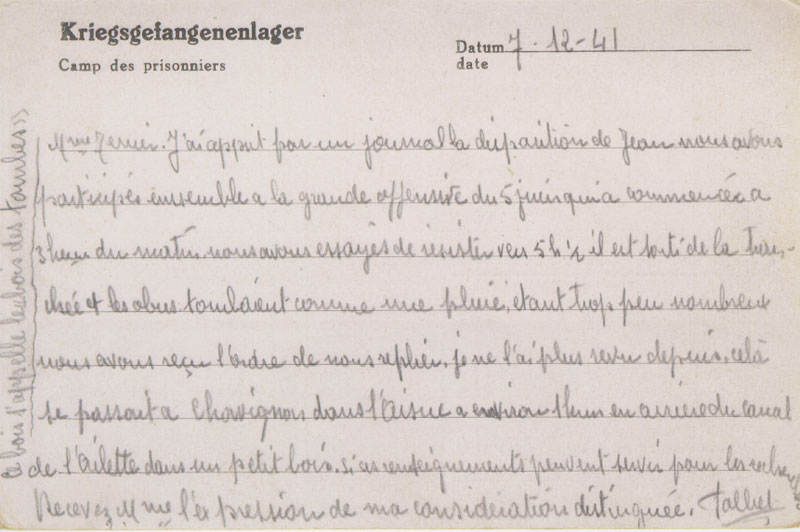 Kriegsgefangenenlager
Camp des prisonniers
Datum 7-12-41
date
Mme Terrier. J'ai apprit par un journal la disparition de Jean nous avons
participés ensemble a la grande offensive du 5 juin qui a commencée a
3 heures du matin, nous avons essayés de resister vers 5 h ½ il est sorti de la tran-
chée & les obus tombaient comme une pluie, étant trop peu nombreux
nous avons reçu l'ordre de nous replier, je ne l'ai plus revu depuis, celà
se passait a Chavignon dans l'Aisne a environ 1 km en arriere du canal
de l'Ailette dans un petit bois. Si ces renseignements peuvent servir pour les
Recevez Mme l'expression de ma considération distinguée.
ce bois s'appelle le bois des tambes»